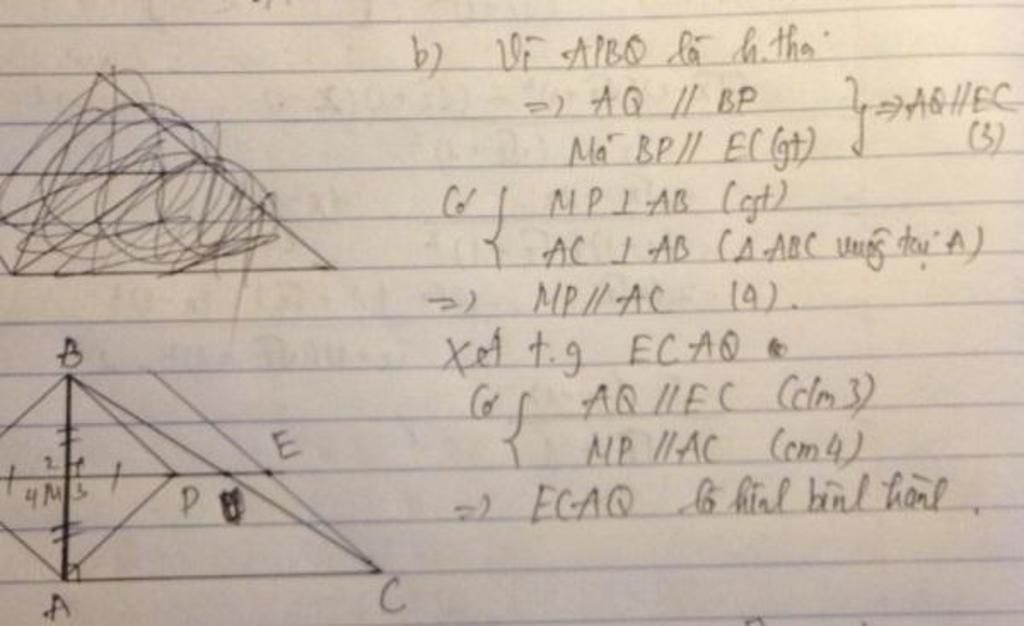 b) Vì APBQ là h.thoi
=> AQ // BP
Mà BP // EC (gt)
=> AQ // EC
(3)
Có MP ⊥ AB (gt)
AC ⊥ AB (Δ ABC vuông tại A)
=> MP // AC (4).
Xét t.g ECAQ
Có AQ // EC (cm 3)
MP // AC (cm 4)
=> ECAQ là hình bình hành.
B
E
2 1
4 M 3
P
A
C